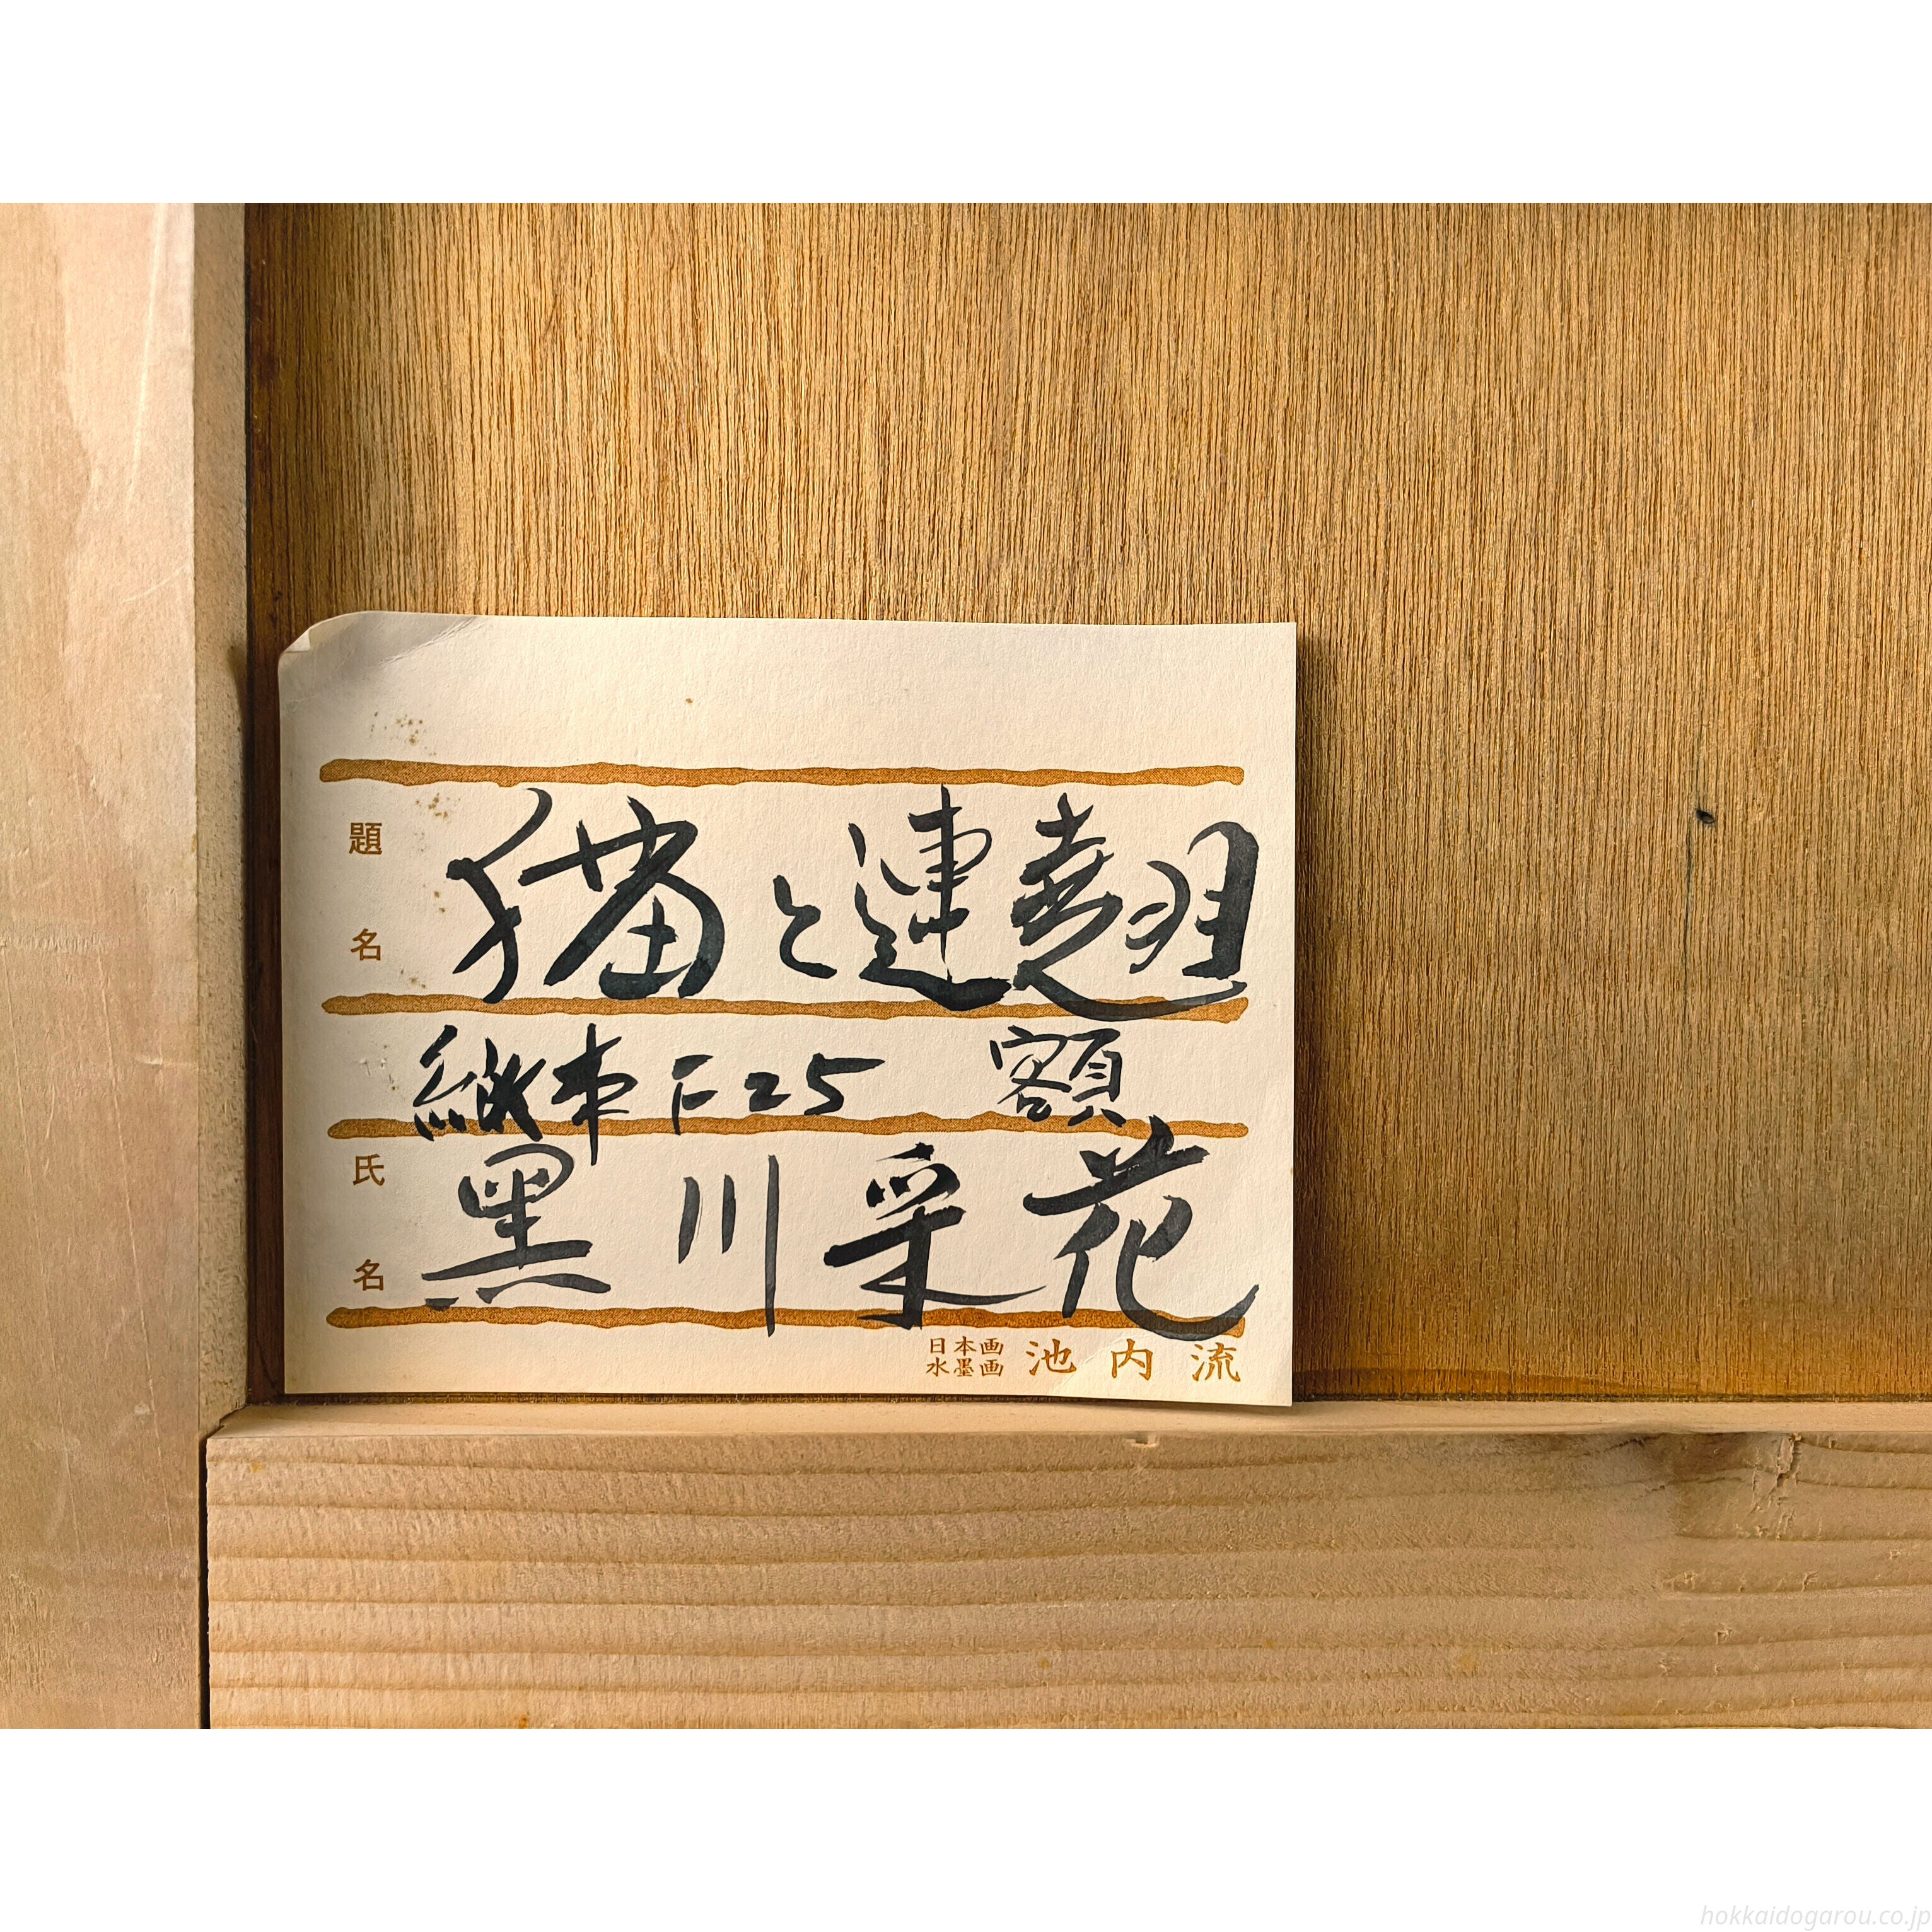 題名 猫と連翹
紙本F25 額
氏名 黒川采花
日本画
水墨画 池内流
hokkaidogarou.co.jp